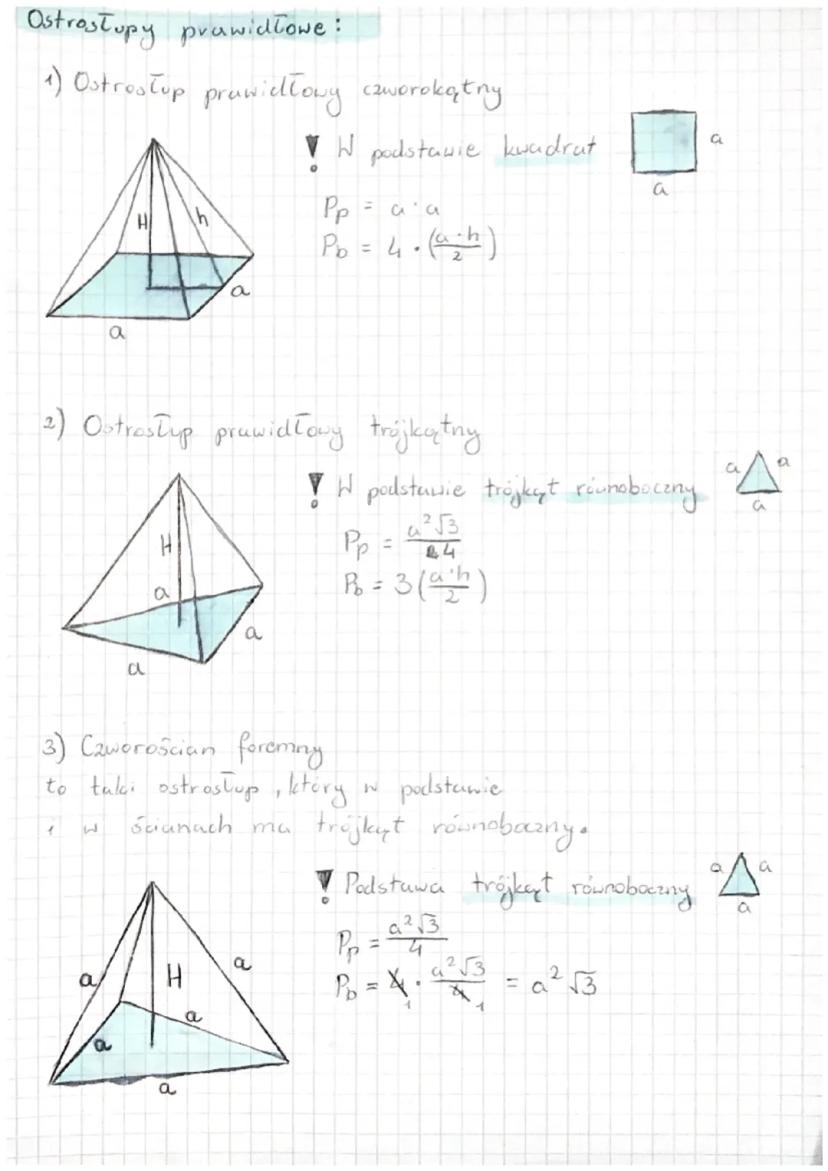 Ostrosłupy prawidłowe:
1) Ostrosłup prawidłowy czworokątny
! W podstawie kwadrat
a
a
Pp = a · a
Pb = 4 · (a·h/2)
H
h
a
a
2) Ostrosłup prawidłowy trójkątny
! W podstawie trójkąt równoboczny
a
a
a
Pp = a²√3/4
Pb = 3(a·h/2)
H
a
a
a
3) Czworościan foremny
to taki ostrosłup, który w podstawie
i w ścianach ma trójkąt równoboczny.
! Podstawa trójkąt równoboczny
a
a
a
Pp = a²√3/4
Pb = 4 1 · a²√3/4 1 = a²√3
a
H
a
a
a
a